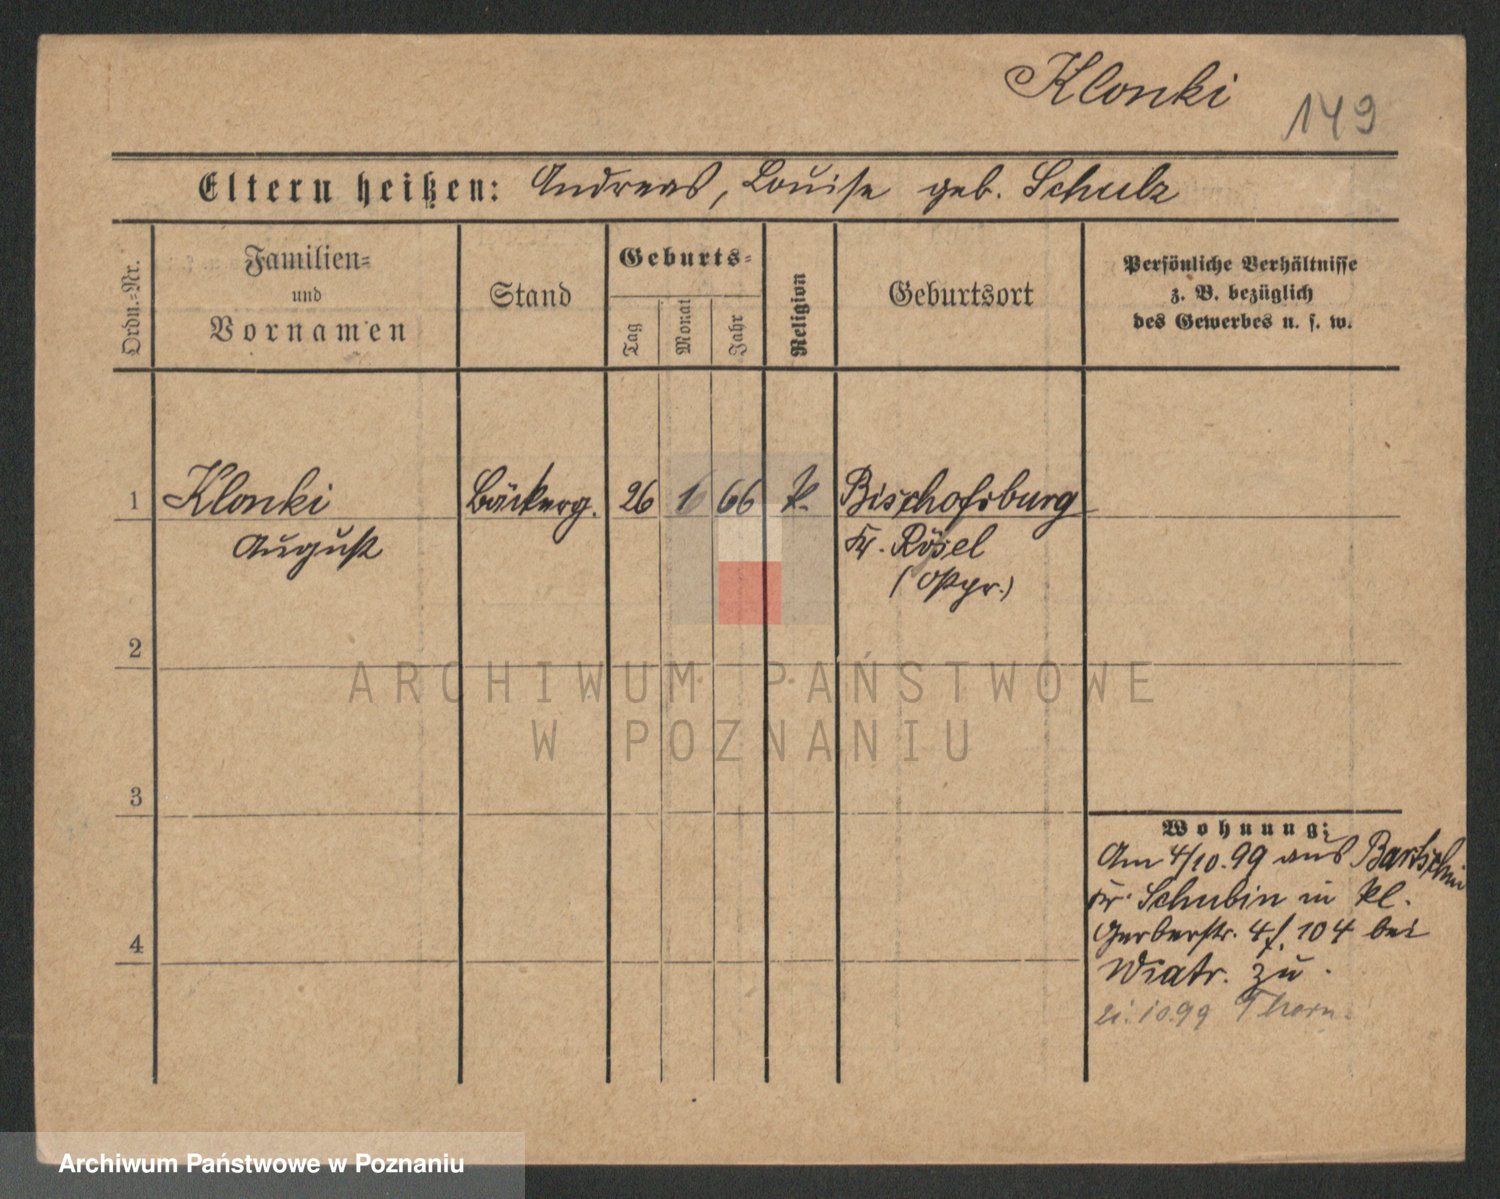 Klonki
149
Eltern heißen: Andreas, Louise geb. Schulz
Ordn.-Nr.
Familien-
und
Vornamen
Stand
Geburts-
Tag
Monat
Jahr
Religion
Geburtsort
Persönliche Verhältnisse
z. B. bezüglich
des Gewerbes u. s. w.
1 Klonki Bäckerg. 26 1 66 k. Bischofsburg
August Kr. Rösel
(Ostpr.)
2
3
4
Wohnung:
Am 4/10.99 aus Bartschin
Kr. Schubin in Kl.
Gerberstr. 4 f. 104 bei
Wiatr. zu.
21.10.99 Thorn.
ARCHIWUM PAŃSTWOWE
W POZNANIU
Archiwum Państwowe w Poznaniu